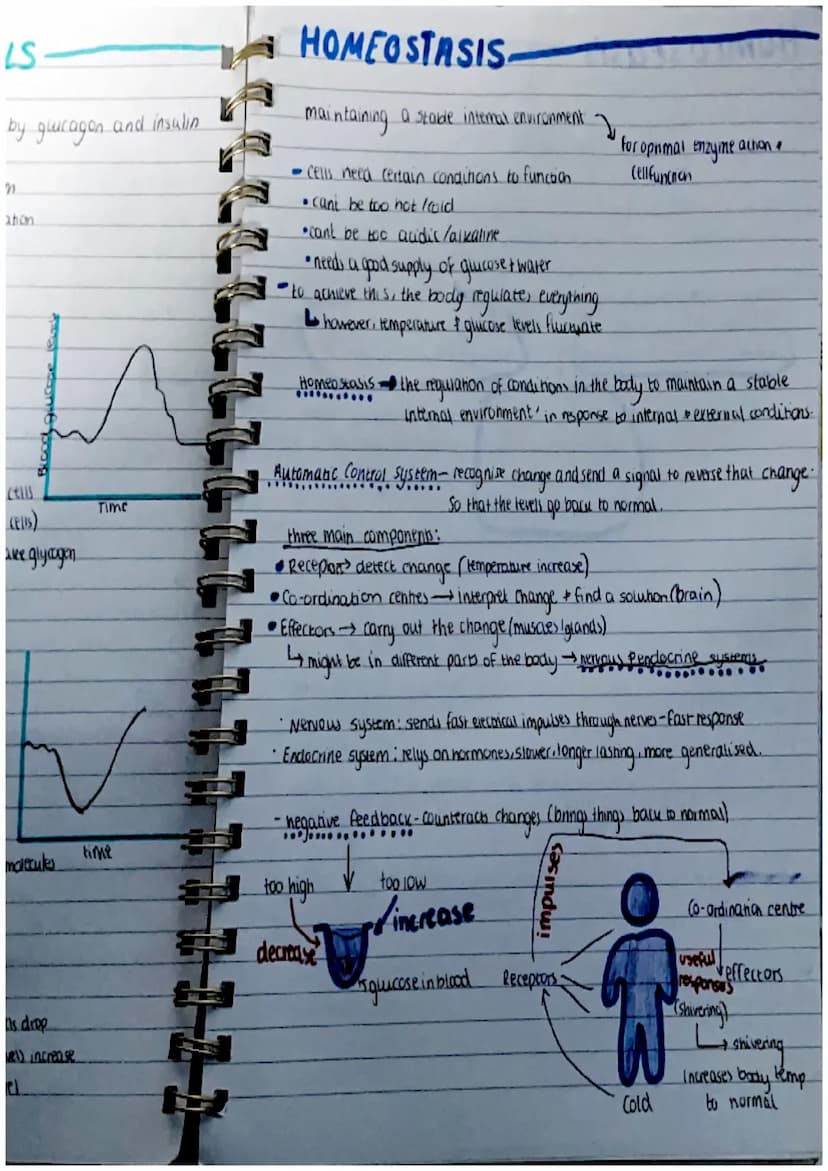 LS
by glucagon and insulin
ation
Blood glucose levels
Time
cells
cells)
glycogen
time
molecules
drop
increase
HOMEOSTASIS
maintaining a stable internal environment
for optimal enzyme action +
cell function
- cells need certain conditions to function
• cant be too hot/cold
• cant be too acidic/alkaline
• needs a good supply of glucose + water
- to achieve this, the body regulates everything
↳ however, temperature & glucose levels fluctuate
Homeostasis → the regulation of conditions in the body to maintain a stable
internal environment' in response to internal + external conditions.
Automatic Control System - recognise change and send a signal to reverse that change.
So that the levels go back to normal.
three main components:
• Receptors → detect change (temperature increase)
• Co-ordination centres → interpret change + find a solution (brain)
• Effectors → carry out the change (muscles/glands)
↳ might be in different parts of the body → nervous & endocrine systems
· Nervous system: sends fast electrical impulses through nerves - fast response
· Endocrine system: relys on hormones, slower, longer lasting, more generalised.
- negative feedback - counteracts changes (brings things back to normal)
too high
too low
increase
decrease
glucose in blood
impulses
Receptors
Co-ordination centre
useful
responses
effectors
(shivering)
↳ shivering
increases body temp
to normal
Cold